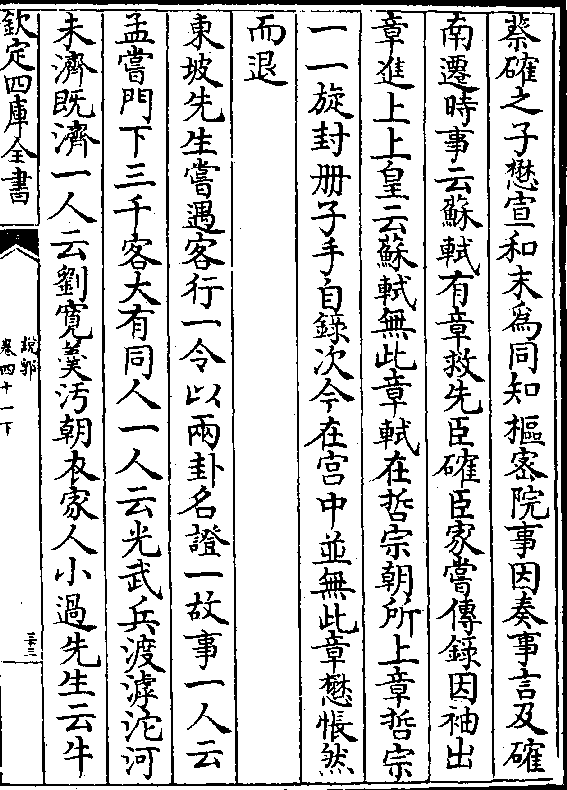 蔡確之子懋宣和末爲同知樞密院事因奏事言及確
南遷時事云蘇軾有章救先臣確臣家嘗傳錄因袖出
章進上上皇云蘇軾無此章軾在哲宗朝所上章哲宗
一一旋封册子手自錄次今在宫中並無此章懋悵然
而退
東坡先生嘗遇客行一令以兩卦名證一故事一人云
孟嘗門下三千客大有同人一人云光武兵渡滹沱河
未濟既濟一人云劉寛羮汚朝衣家人小過先生云牛
欽定四庫全書
說郛
卷四十一下
三十三